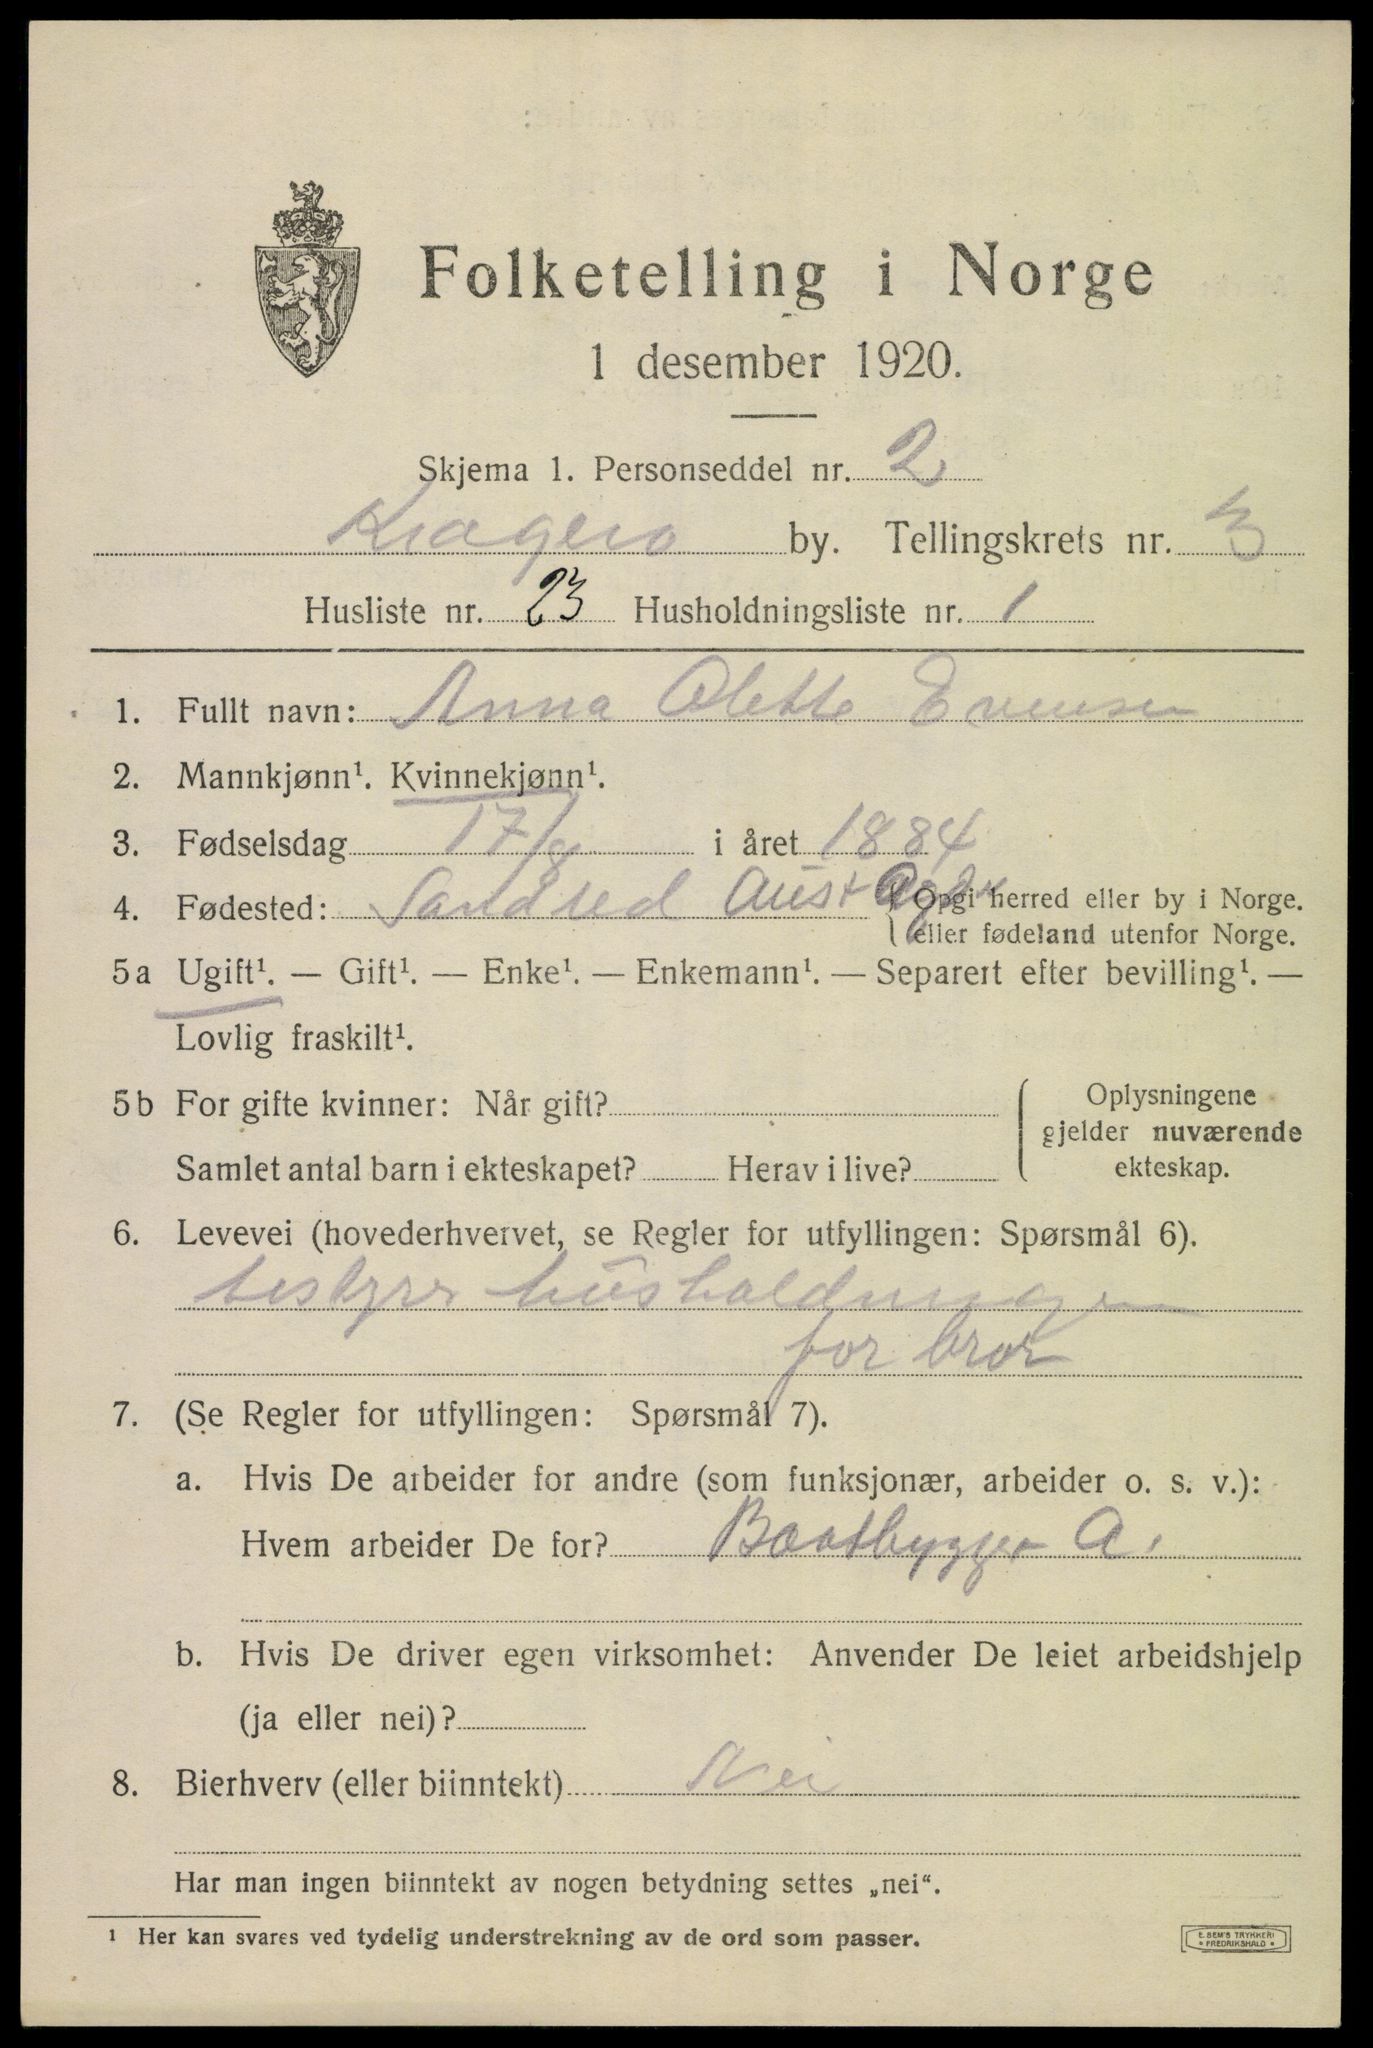 Folketelling i Norge
1 desember 1920.
Skjema 1. Personseddel nr. 2
Kragerø by. Tellingskrets nr. 3
Husliste nr. 23 Husholdningsliste nr. 1
1. Fullt navn: Anna Olette Evensen
2. Mannkjønn¹. Kvinnekjønn¹.
3. Fødselsdag 17/8 i året 1884
4. Fødested: Sandred Aust Agder { Opgi herred eller by i Norge.
eller fødeland utenfor Norge.
5a Ugift¹. — Gift¹. — Enke¹. — Enkemann¹. — Separert efter bevilling¹. —
Lovlig fraskilt¹.
5b For gifte kvinner: Når gift?
Samlet antal barn i ekteskapet? Herav i live?
Oplysningene
gjelder nuværende
ekteskap.
6. Levevei (hovederhvervet, se Regler for utfyllingen: Spørsmål 6).
bestyrer husholdningen
for bror
7. (Se Regler for utfyllingen: Spørsmål 7).
a. Hvis De arbeider for andre (som funksjonær, arbeider o. s. v.):
Hvem arbeider De for? Baatbygger A.
b. Hvis De driver egen virksomhet: Anvender De leiet arbeidshjelp
(ja eller nei)?
8. Bierhverv (eller biinntekt) Nei
Har man ingen biinntekt av nogen betydning settes „nei“.
¹ Her kan svares ved tydelig understrekning av de ord som passer.
E. SEM'S TRYKKERI
• FREDRIKSHALD •